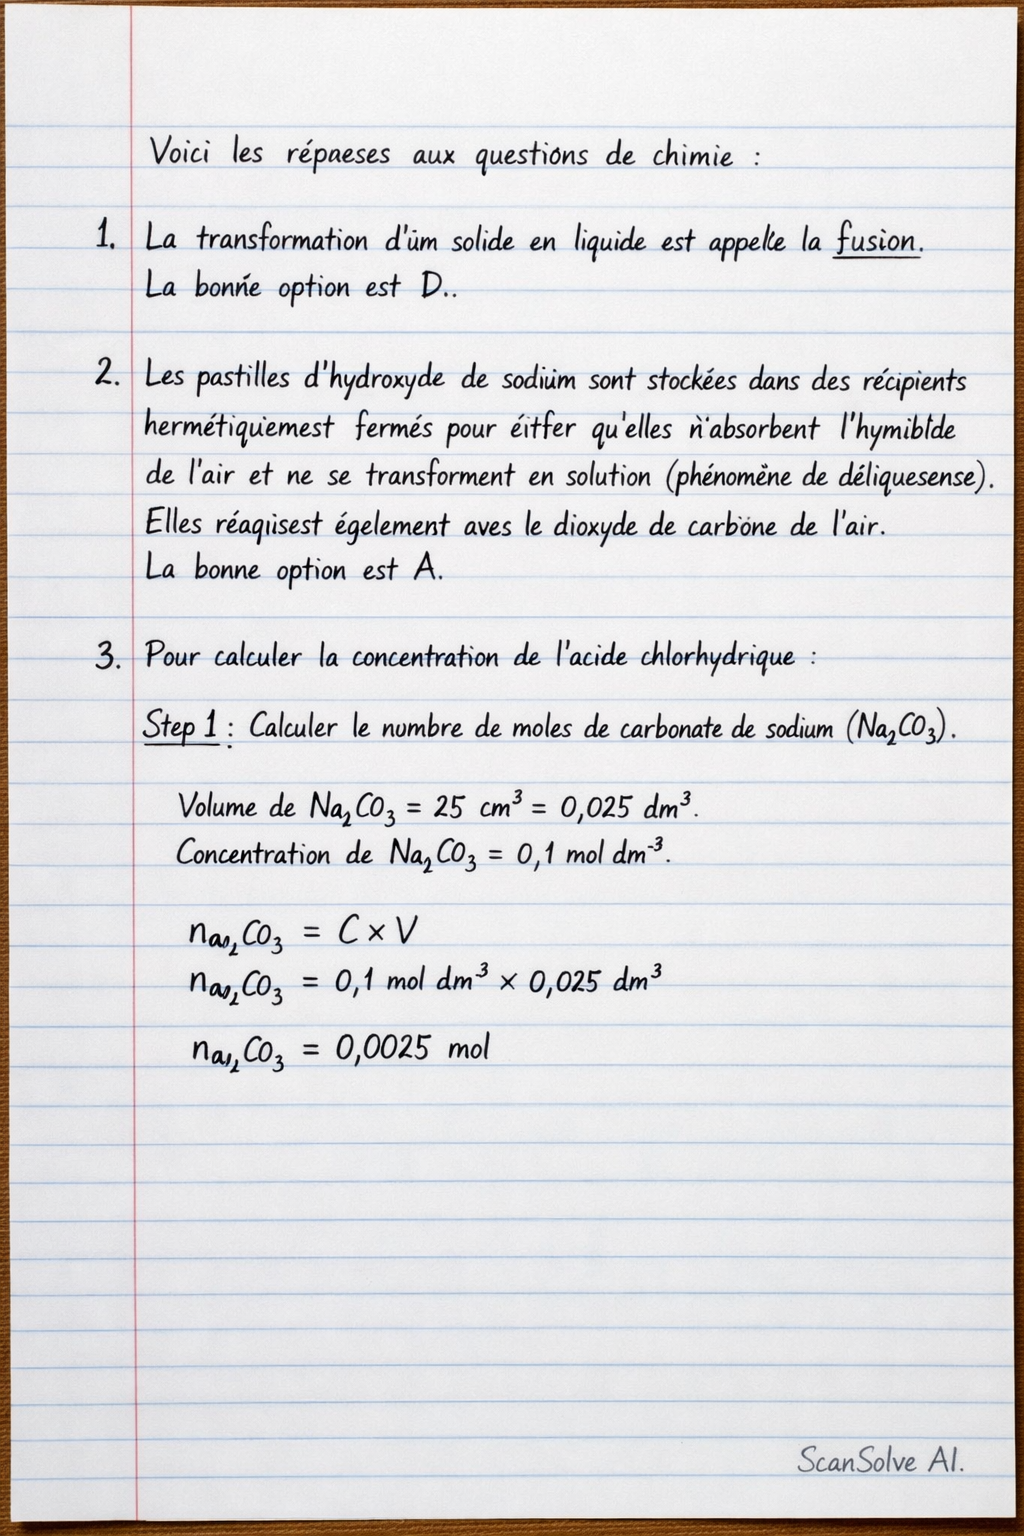 Voici les répaeses aux questions de chimie :
1. La transformation d'üm solide en liquide est appelle la fusion.
La bonne option est D..
2. Les pastilles d'hydroxyde de sodium sont stockées dans des récipients
hermétiquiemest fermés pour éitfer qu'elles n'absorbent l'hymibtde
de l'air et ne se transforment en solution (phénomëne de déliquesense).
Elles réagisest égelement aves le dioxyde de carbone de l'air.
La bonne option est A.
3. Pour calculer la concentration de l'acide chlorhydrique :
Step 1 : Calculer le numbre de moles de carbonate de sodium (Na₂CO₃).
Volume de Na₂CO₃ = 25 cm³ = 0,025 dm³.
Concentration de Na₂CO₃ = 0,1 mol dm⁻³.
CO₃ = C × V
CO₃ = 0,1 mol dm³ × 0,025 dm³
CO₃ = 0,0025 mol
ScanSolve AI.